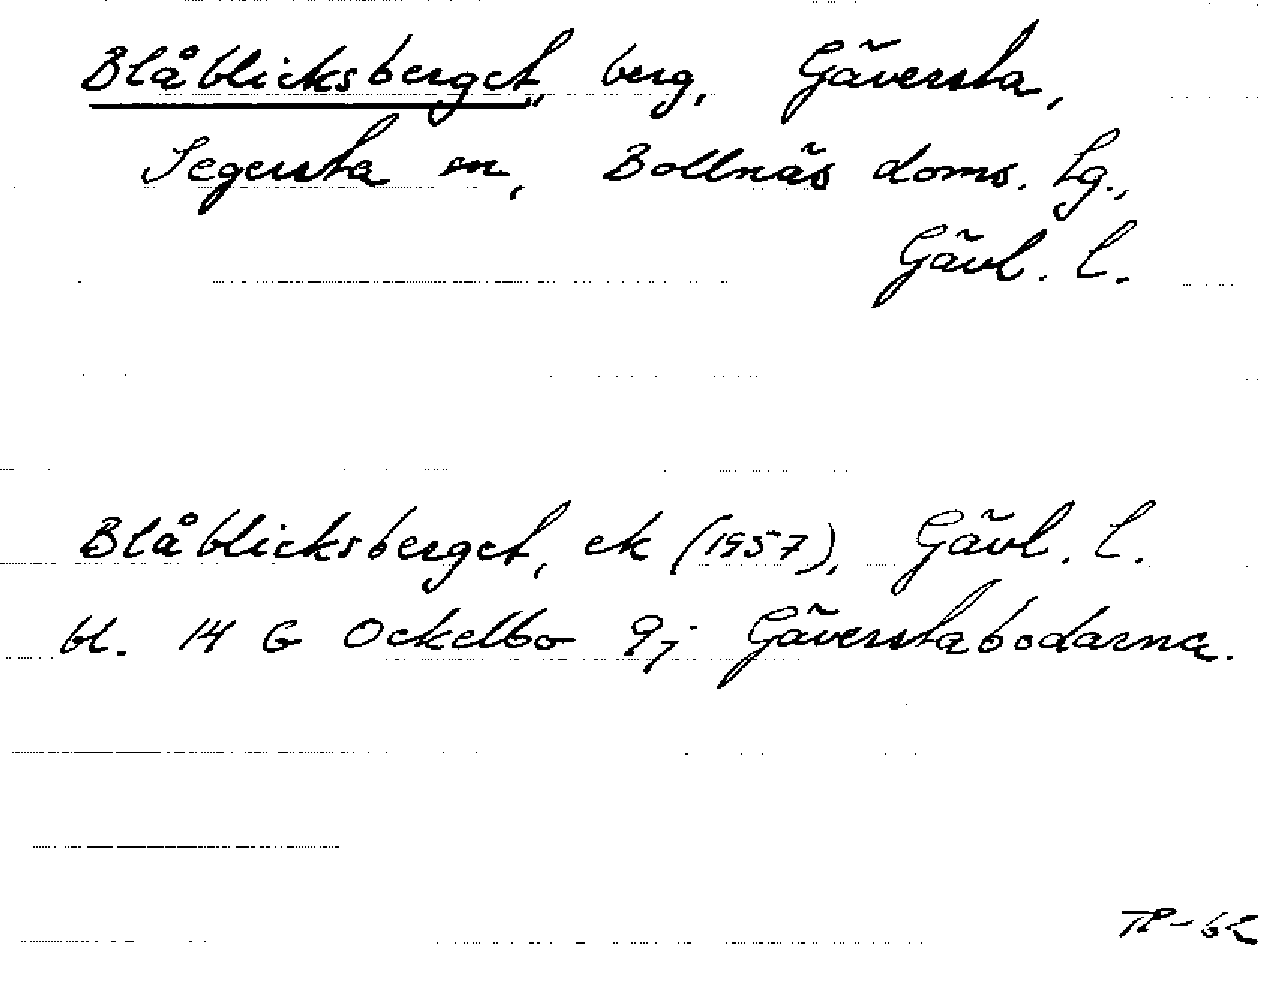 Blåblicksberget, berg, Gäversta,
Segersta sn, Bollnäs doms. tg.,
Gävl. l.
Blåblicksberget, ek (1957), Gävl. l.
bl. 14 G Ockelbo 9j Gäverstabodarna.
TP-62